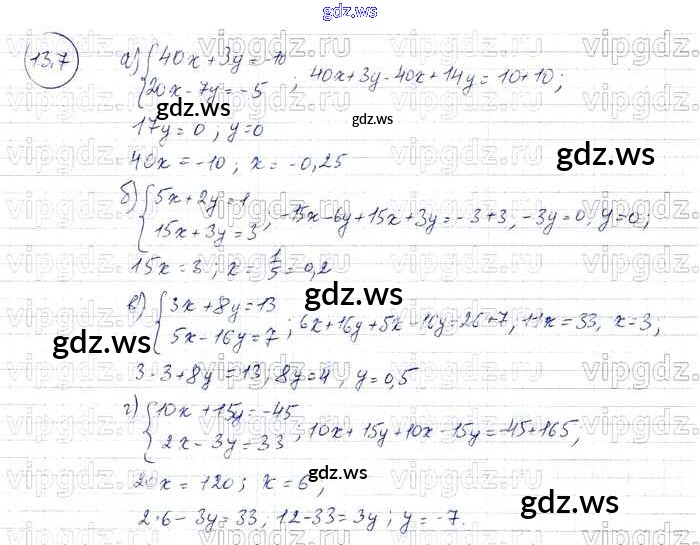 gdz.ws
13.7
а) { 40x + 3y = -10
20x - 7y = -5 ; 40x + 3y - 40x + 14y = 10 + 10;
17y = 0 ; y = 0
40x = -10 ; x = -0,25
б) { 5x + 2y = 1
15x + 3y = 3 ; -15x - 6y + 15x + 3y = -3 + 3, -3y = 0, y = 0;
15x = 3 ; x = 1/5 = 0,2
в) { 3x + 8y = 13
5x - 16y = 7 ; 6x + 16y + 5x - 16y = 26 + 7, 11x = 33, x = 3;
3·3 + 8y = 13, 8y = 4, y = 0,5
г) { 10x + 15y = -45
2x - 3y = 33 ; 10x + 15y + 10x - 15y = -45 + 165,
20x = 120; x = 6,
2·6 - 3y = 33, 12 - 33 = 3y; y = -7.
gdz.ws
gdz.ws
gdz.ws
gdz.ws
gdz.ws
gdz.ws
gdz.ws
vipgdz.ru